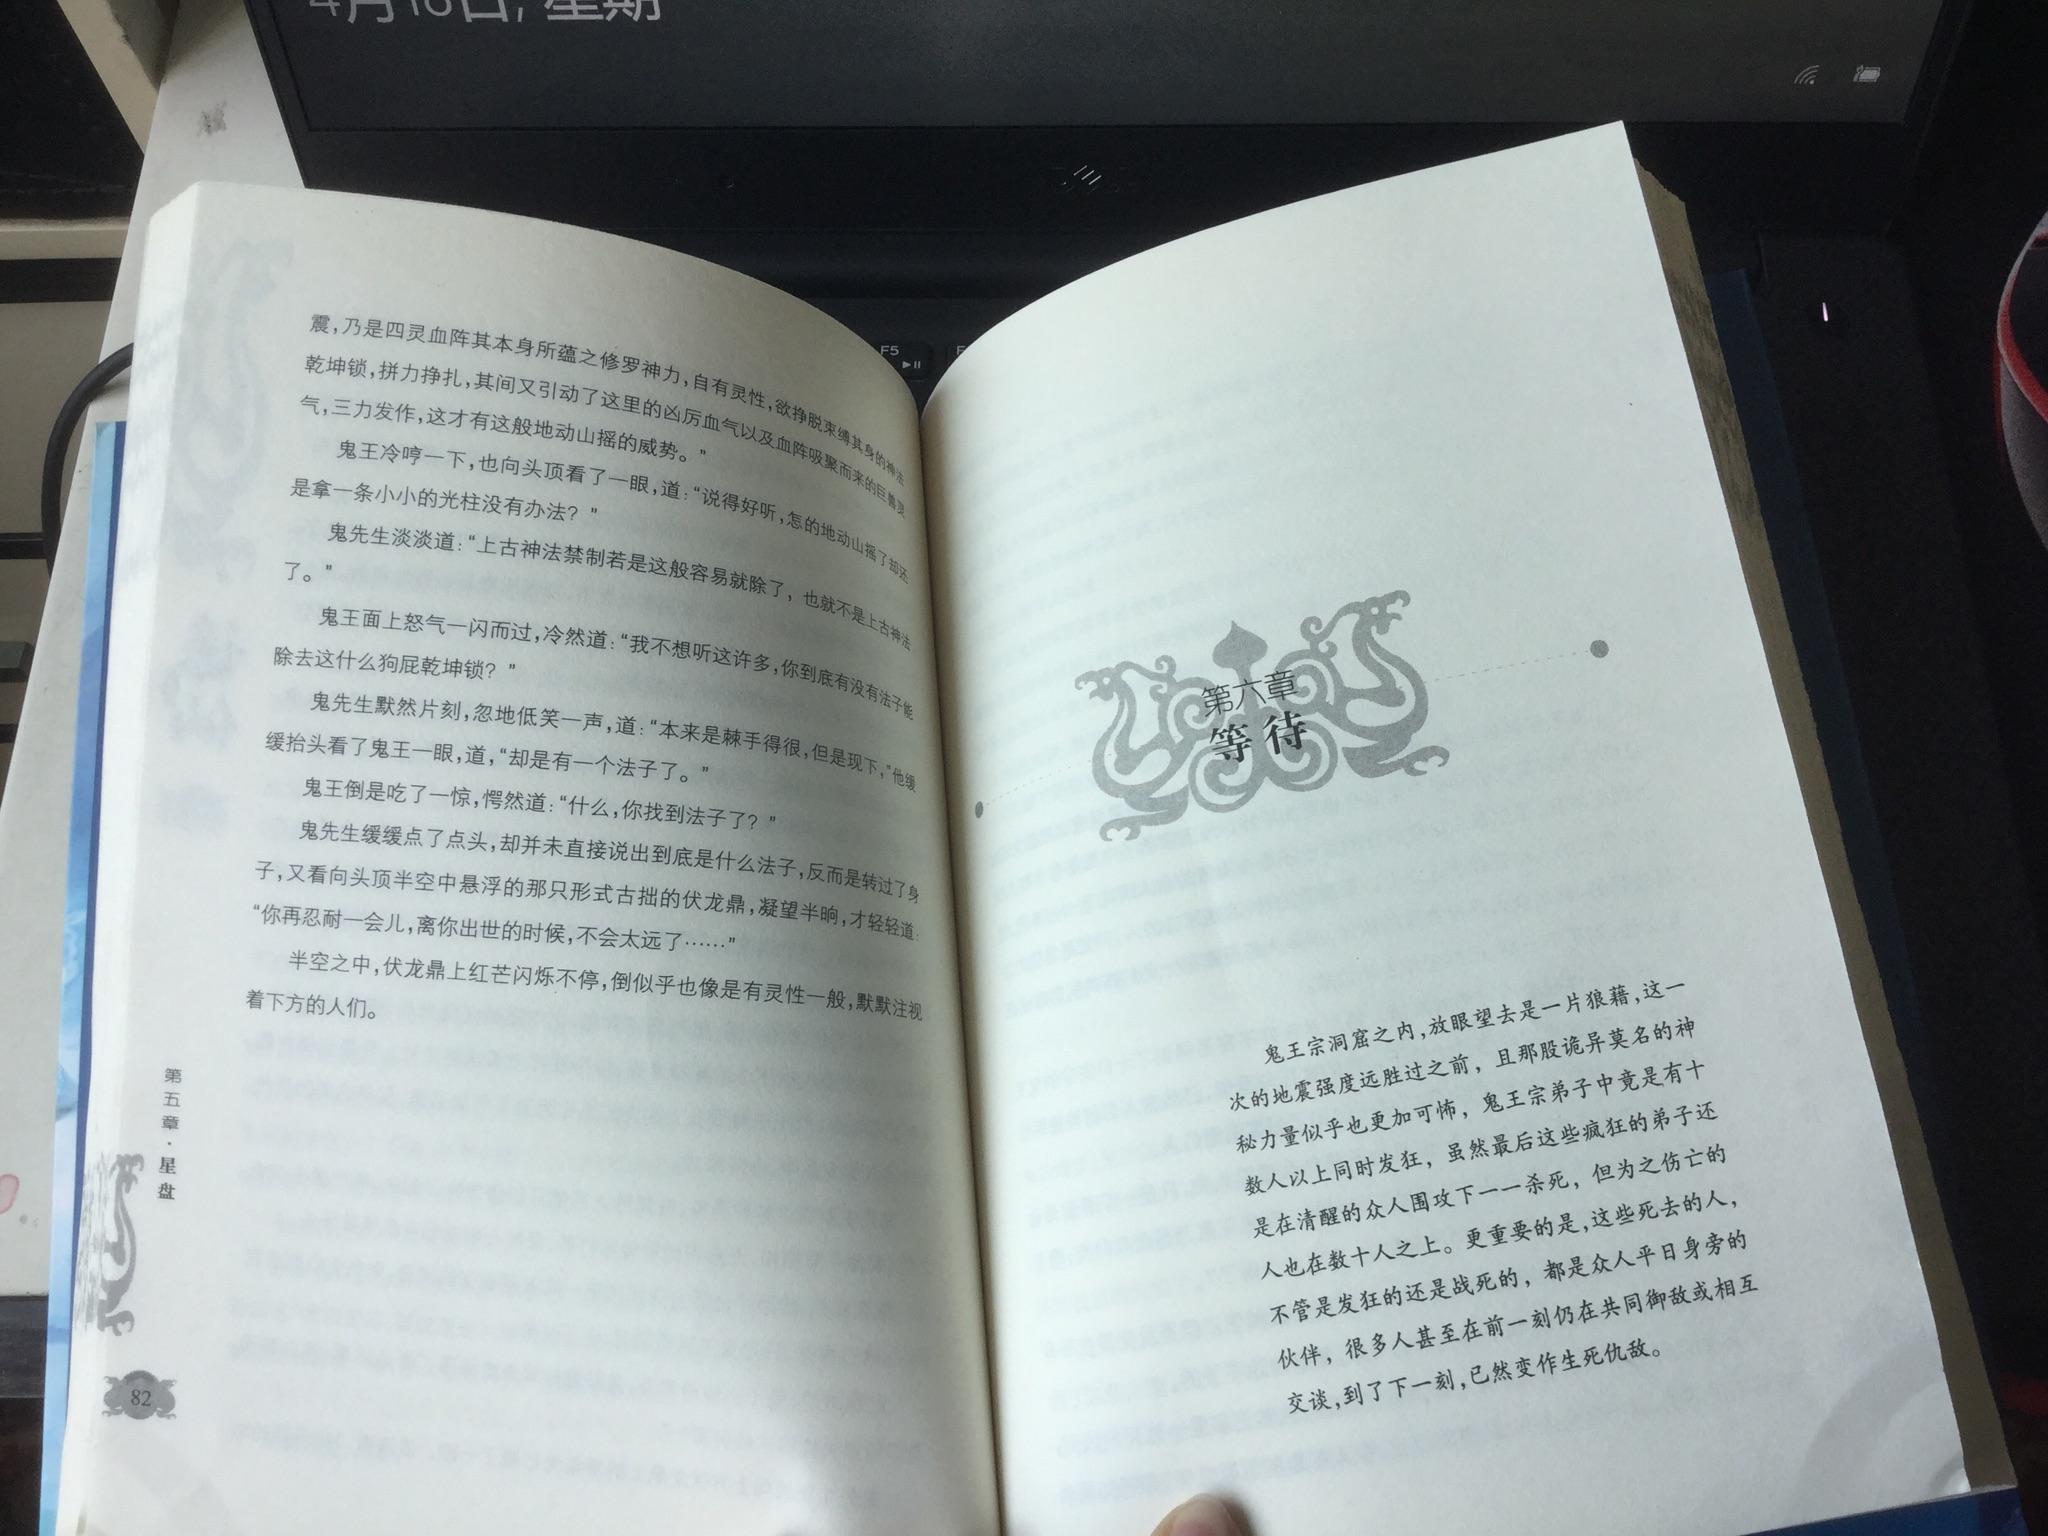 4月16日, 星期
F5
震，乃是四灵血阵其本身所蕴之修罗神力，自有灵性，欲挣脱束缚其身的神法
乾坤锁，拼力挣扎，其间又引动了这里的凶厉血气以及血阵吸聚而来的巨兽灵
气，三力发作，这才有这般地动山摇的威势。”
鬼王冷哼一下，也向头顶看了一眼，道：“说得好听，怎的地动山摇了却还
是拿一条小小的光柱没有办法？”
鬼先生淡淡道：“上古神法禁制若是这般容易就除了，也就不是上古神法
了。”
鬼王面上怒气一闪而过，冷然道：“我不想听这许多，你到底有没有法子能
除去这什么狗屁乾坤锁？”
鬼先生默然片刻，忽地低笑一声，道：“本来是棘手得很，但是现下，”他缓
缓抬头看了鬼王一眼，道，“却是有一个法子了。”
鬼王倒是吃了一惊，愕然道：“什么，你找到法子了？”
鬼先生缓缓点了点头，却并未直接说出到底是什么法子，反而是转过了身
子，又看向头顶半空中悬浮的那只形式古拙的伏龙鼎，凝望半晌，才轻轻道：
“你再忍耐一会儿，离你出世的时候，不会太远了……”
半空之中，伏龙鼎上红芒闪烁不停，倒似乎也像是有灵性一般，默默注视
着下方的人们。
第五章·星盘
82
第六章
等待
鬼王宗洞窟之内，放眼望去是一片狼藉，这一
次的地震强度远胜过之前，且那股诡异莫名的神
秘力量似乎也更加可怖，鬼王宗弟子中竟是有十
数人以上同时发狂，虽然最后这些疯狂的弟子还
是在清醒的众人围攻下一一杀死，但为之伤亡的
人也在数十人之上。更重要的是，这些死去的人，
不管是发狂的还是战死的，都是众人平日身旁的
伙伴，很多人甚至在前一刻仍在共同御敌或相互
交谈，到了下一刻，已然变作生死仇敌。